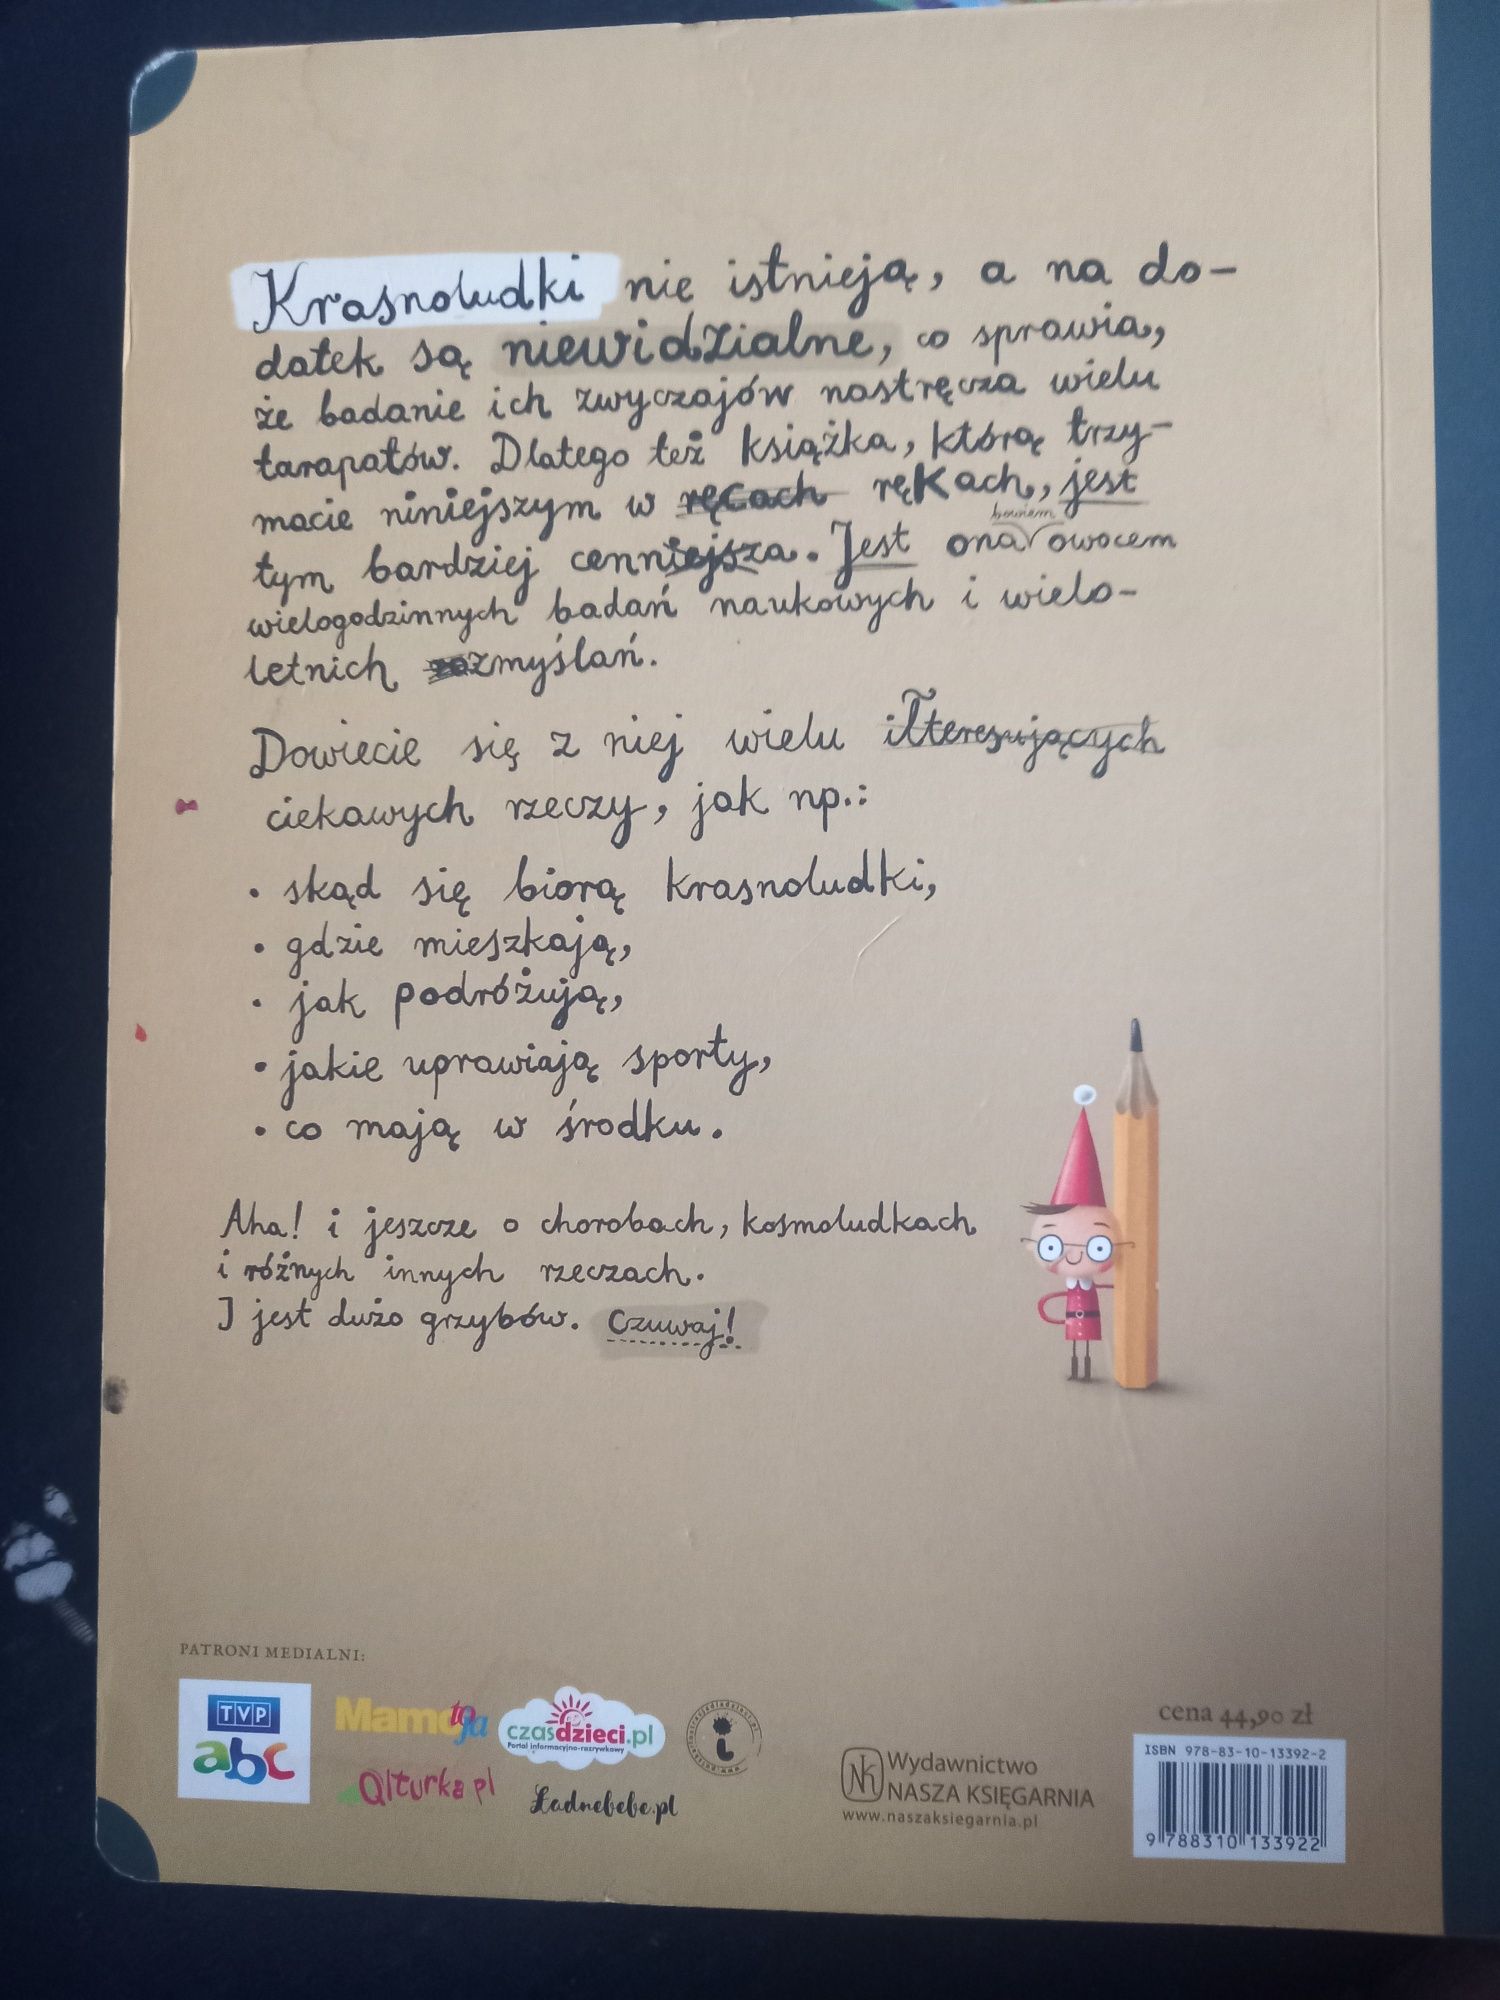 Krasnoludki nie istnieją, a na do-
datek są niewidzialne, co sprawia,
że badanie ich zwyczajów nastręcza wielu
tarapatów. Dlatego też książka, którą trzy-
macie niniejszym w ręcach rękach, jest
tym bardziej cenniejsza. Jest ona bowiem owocem
wielogodzinnych badań naukowych i wielo-
letnich rozmyślań.
Dowiecie się z niej wielu
ciekawych rzeczy, jak np.:
• skąd się biorą krasnoludki,
• gdzie mieszkają,
• jak podróżują,
• jakie uprawiają sporty,
• co mają w środku.
Aha! i jeszcze o chorobach, kosmoludkach
i różnych innych rzeczach.
I jest dużo grzybów. Czuwaj!
PATRONI MEDIALNI:
TVP
abc
Mamo to ja
czasdzieci.pl
Portal informacyjno-rozrywkowy
Qlturka.pl
Ładnebebe.pl
Wydawnictwo
NASZA KSIĘGARNIA
www.naszaksiegarnia.pl
cena 44,90 zł
ISBN 978-83-10-13392-2
9 788310 133922